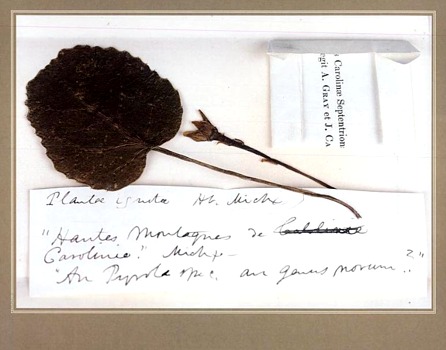 Carolinæ Septentrion
legit A. GRAY et J. CA
Plantae ignota Hb. Michx.
"Hautes Montagnes de
Carolinie" Michx—
"An Pyrola spec. an genus novum?"